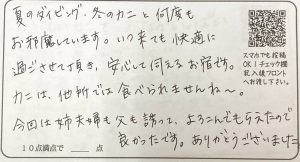 夏のダイビング、冬のカニと何度も
お邪魔しています。いつ来ても快適に
過ごさせて頂き、安心して伺えるお宿です。
カニは、他所では食べられませんね～。
今回は姉夫婦も父も誘って、よろこんでもらえたので
良かったです。ありがとうございました
10点満点で＿＿点
スマホでも投稿
OK！チェック欄
記入後フロント
へお渡し下さい。